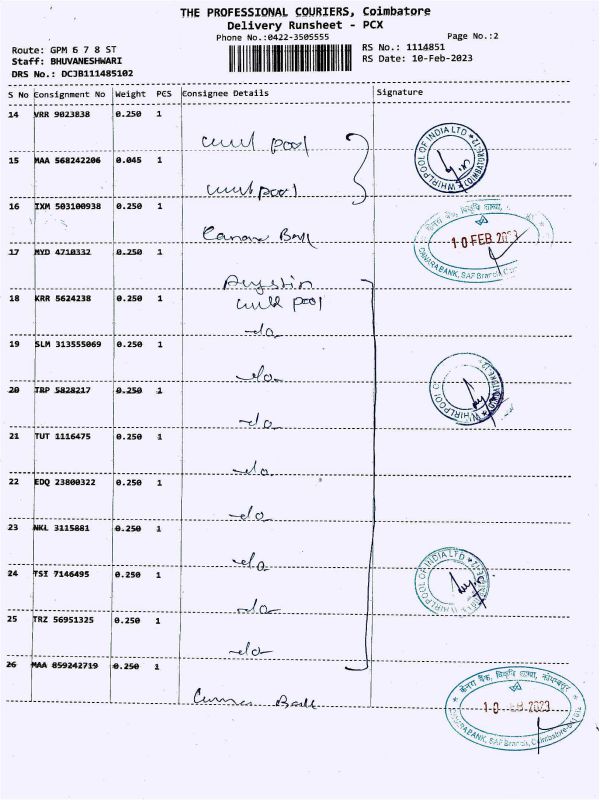 THE PROFESSIONAL COURIERS, Coimbatore
Delivery Runsheet - PCX
Phone No.:0422-3505555
Page No.:2
Route: GPM 6 7 8 ST
Staff: BHUVANESHWARI
DRS No.: DCJB111485102
RS No.: 1114851
RS Date: 10-Feb-2023
S No Consignment No Weight PCS Consignee Details Signature
14 VRR 9023838 0.250 1
whirl pool
WHIRLPOOL OF INDIA LTD
15 MAA 568242206 0.045 1
whirlpool
16 IXM 503100938 0.250 1
Canara Bank
10 FEB 2023
CANARA BANK, SAF Branch
17 MYD 4710332 0.250 1
whirl pool
18 KRR 5624238 0.250 1
do
19 SLM 313555069 0.250 1
do
WHIRLPOOL O
20 TRP 5828217 0.250 1
do
21 TUT 1116475 0.250 1
do
22 EDQ 23800322 0.250 1
do
23 NKL 3115881 0.250 1
do
WHIRLPOOL OF INDIA LTD
24 TSI 7146495 0.250 1
do
25 TRZ 56951325 0.250 1
do
26 MAA 859242719 0.250 1
Bank
केनरा बैंक, विकृषि शाखा, कोयम्बटूर
2023
CANARA BANK, SAF Branch, Coimbatore